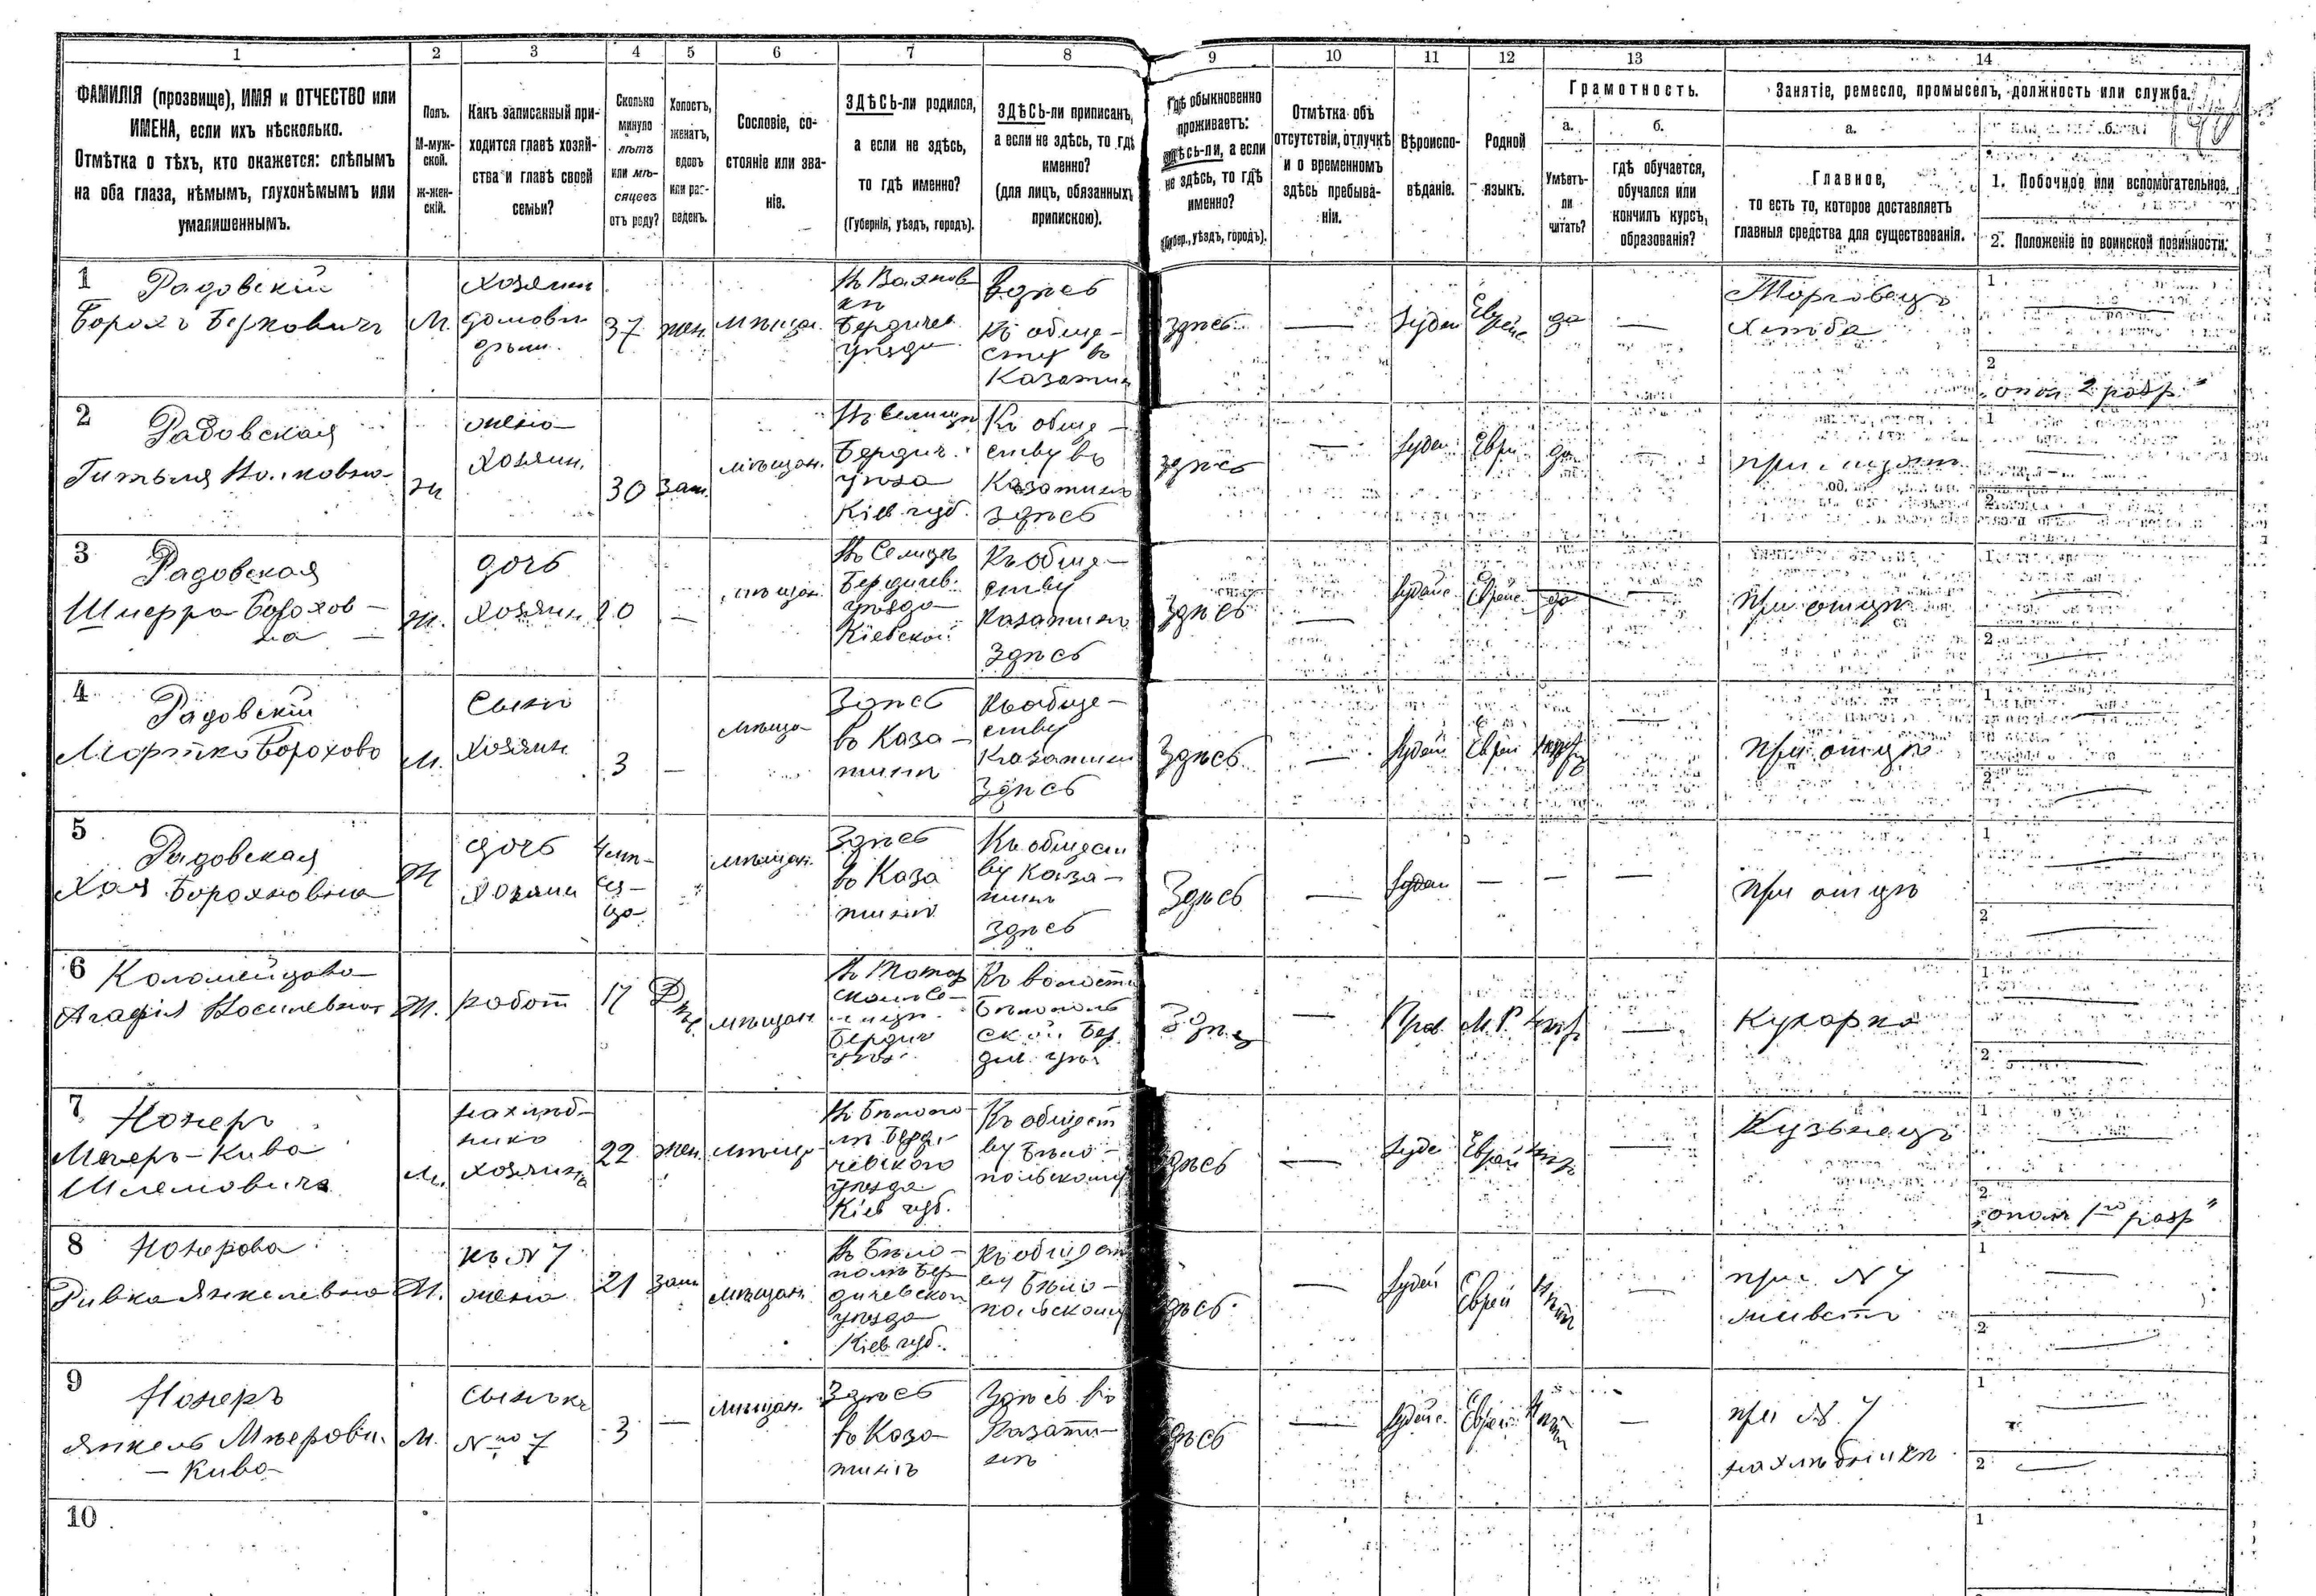 1 2 3 4 5 6 7 8 9 10 11 12 13 14
ФАМИЛІЯ (прозвище), ИМЯ и ОТЧЕСТВО или
ИМЕНА, если ихъ нѣсколько.
Отмѣтка о тѣхъ, кто окажется: слѣпымъ
на оба глаза, нѣмымъ, глухонѣмымъ или
умалишеннымъ.
Полъ.
М-муж-
ской.
ж-жен-
скій.
Какъ записанный при-
ходится главѣ хозяй-
ства и главѣ своей
семьи?
Сколько
минуло
лѣтъ
или мѣ-
сяцевъ
отъ роду?
Холостъ,
женатъ,
вдовъ
или раз-
веденъ.
Сословіе, со-
стояніе или зва-
ніе.
ЗДѢСЬ-ли родился,
а если не здѣсь,
то гдѣ именно?
(Губернія, уѣздъ, городъ).
ЗДѢСЬ-ли приписанъ,
а если не здѣсь, то гдѣ
именно?
(для лицъ, обязанныхъ
припискою).
Гдѣ обыкновенно
проживаетъ:
здѣсь-ли, а если
не здѣсь, то гдѣ
именно?
(Губер., уѣздъ, городъ).
Отмѣтка объ
отсутствіи, отлучкѣ
и о временномъ
здѣсь пребыва-
ніи.
Вѣроиспо-
вѣданіе.
Родной
языкъ.
Грамотность.
а.
Умѣетъ-
ли
читать?
б.
гдѣ обучается,
обучался или
кончилъ курсъ,
образованія?
Занятіе, ремесло, промыселъ, должность или служба.
а.
Главное,
то есть то, которое доставляетъ
главныя средства для существованія.
б.
1. Побочное или вспомогательное.
2. Положеніе по воинской повинности.
1 Радовскій
Борохъ Берковичъ
М.
хозяин
37
жен.
Бердичев.
уѣзда
Здѣсь
Къ обще-
ству въ
Казатин
здѣсь
—
Іудей
да
—
Торговецъ
хлѣба
1
2
опол. 2 разр."
2 Радовская
жена
хозяин.
30
Зам.
мѣщан.
Бердич.
уѣзда
Кіев. губ.
Къ обще-
ству въ
Казатинѣ
здѣсь
здѣсь
—
Іудей
Еврй
да
—
1
2
3 Радовская
Борохов-
на
дочь
хозяин
10
—
мѣщан.
Бердичев.
уѣзда
Кіевской
Къ обще-
ству
Казатинѣ
Здѣсь
здѣсь
—
Іудейс
Еврейс
да
—
при отцѣ
1
2
4 Радовскій
Мортко Борохово
М.
сынъ
хозяин.
3
—
мѣща
Здѣсь
въ Каза-
тинѣ
Къ обще-
ству
Казатин
Здѣсь
Здѣсь
—
Іудей
Еврей
—
при отцѣ
1
2
5 Радовская
Хая Бороховна
Ж
дочь
хозяин
4 мѣ-
сяца
мѣщан.
Здѣсь
въ Каза
тинѣ
Къ общест
ву Каза-
тинѣ
здѣсь
Здѣсь
—
Іудей
—
—
—
при отцѣ
1
2
6 Коломейцова
Агафія Василевна
Ж.
робот
17
мѣщан
Бердич
уѣзд.
Къ волости
Бѣлополь
ской Бер
дич. уѣз
—
Прав.
М. Р.
—
Кухарка
1
2
7 Ножеръ
Меер-Кива
Шлемовичъ
М.
нахлѣб-
никъ
хозяина
22
жен.
мѣщ
уѣзда
Кіев губ.
Къ общест
ву Бѣло-
польскому
здѣсь
—
Іудей
Еврей
—
Кузьнецъ
1
2
„опол 1го разр"
8 Ножерова
Ривка Янкелевна
Ж.
къ № 7
жена
21
зам
мѣщан.
въ Бѣло-
полѣ Бер-
дичевской
уѣзда
Кіев губ.
Къ общест
ву Бѣло-
польскому
здѣсь.
—
Іудей
Еврей
Нѣт
—
при № 7
живетъ
1
2
9 Ножеръ
Янкель Мееров.
-Кива
М.
сынъ къ
№ 7
3
—
мѣщан.
Здѣсь
въ Каза
тинѣ
Здѣсь въ
Казати-
нѣ
здѣсь
—
Іудейс.
Еврей
Нѣт
—
при № 7
нахлѣбникѣ
1
2
10
1